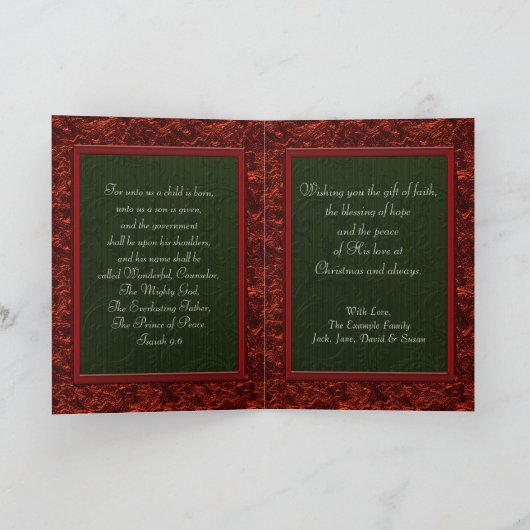 For unto us a child is born,
unto us a son is given,
and the government
shall be upon his shoulders,
and his name shall be
called Wonderful, Counselor,
The Mighty God,
The Everlasting Father,
The Prince of Peace.
Isaiah 9:6
Wishing you the gift of faith,
the blessing of hope
and the peace
of His love at
Christmas and always.
With Love,
The Example Family
Jack, Jane, David & Susan